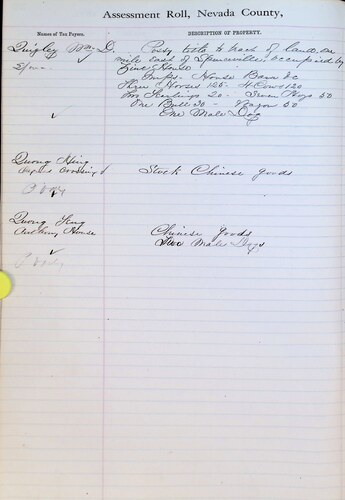 Assessment Roll, Nevada County,
Names of Tax Payers.
DESCRIPTION OF PROPERTY.
Quigley D. Poss title to tract of land one
mile east of occupied by
House
Imps. House Barn &c
Three Horses 125 - 4 Cows 120
Two Yearlings 20 - Seven Hogs 50
One Bull 30 - Wagon 50
One Male Dog
Quong Hing
Crossing Stock Chinese Goods
Quong
Anthony House Chinese Goods
Two Male Dogs